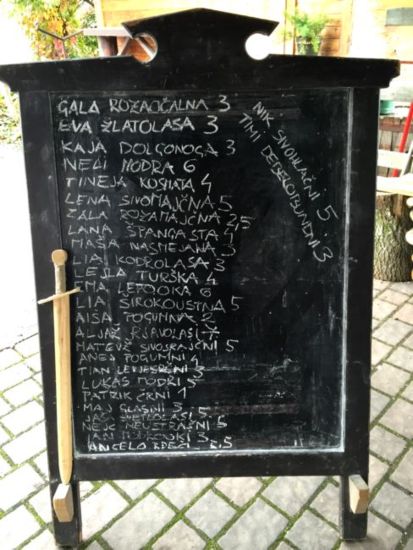 GALA ROZAOČALNA 3
EVA ZLATOLASA 3
KAJA DOLGONOGA 3
NELI MODRA 6
TINEJA KOSMATA 4
LENA SIVOMAJČNA 5
ZALA ROZAMAJČNA 2,5
LANA ŠPANGASTA 1
MAŠA NASMEJANA 3
LIA KODROLASA 3
LEJLA TURŠKA 4
EMA LEPOOKA 6
LIA ŠIROKOUSTNA 5
AIŠA POGUMNA 2
ALJAŽ RJAVOLASI 7
MATEVŽ SIVOSRAJČNI 5
ANEJ POGUMNI 4
TIAN LEVJESRČNI 3
LUKAS MODRI 5
PATRIK ČRNI 1
MAJ GLASNI 3
JAŠ SVETLOLASI 5
NEJC NEUSTRAŠNI 5
JAN 3
ANGELO RDEČI 2.5
NIK SIVOHLAČNI 5
TIMI 3